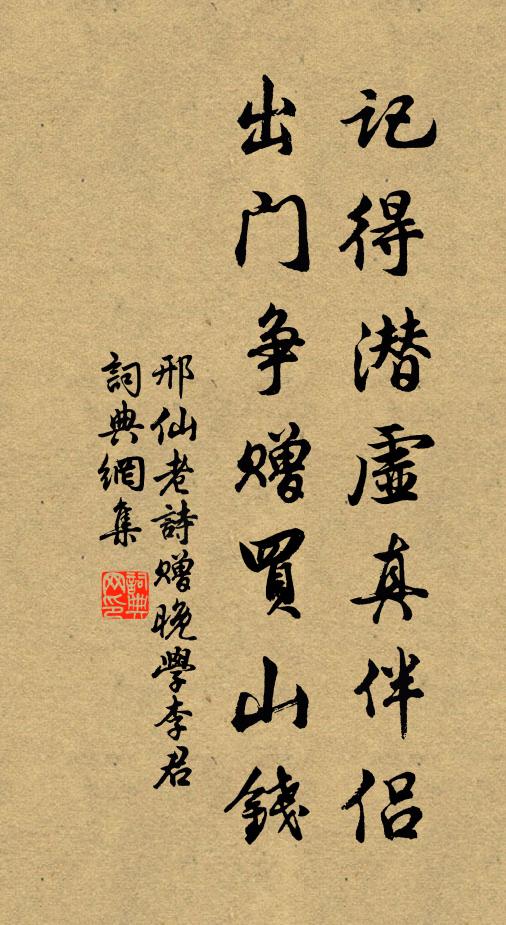 记得潜虚真伴侣
出门争赠買山錢
邢仙老詩赠晚學李君
詞典網集
詞典
网印